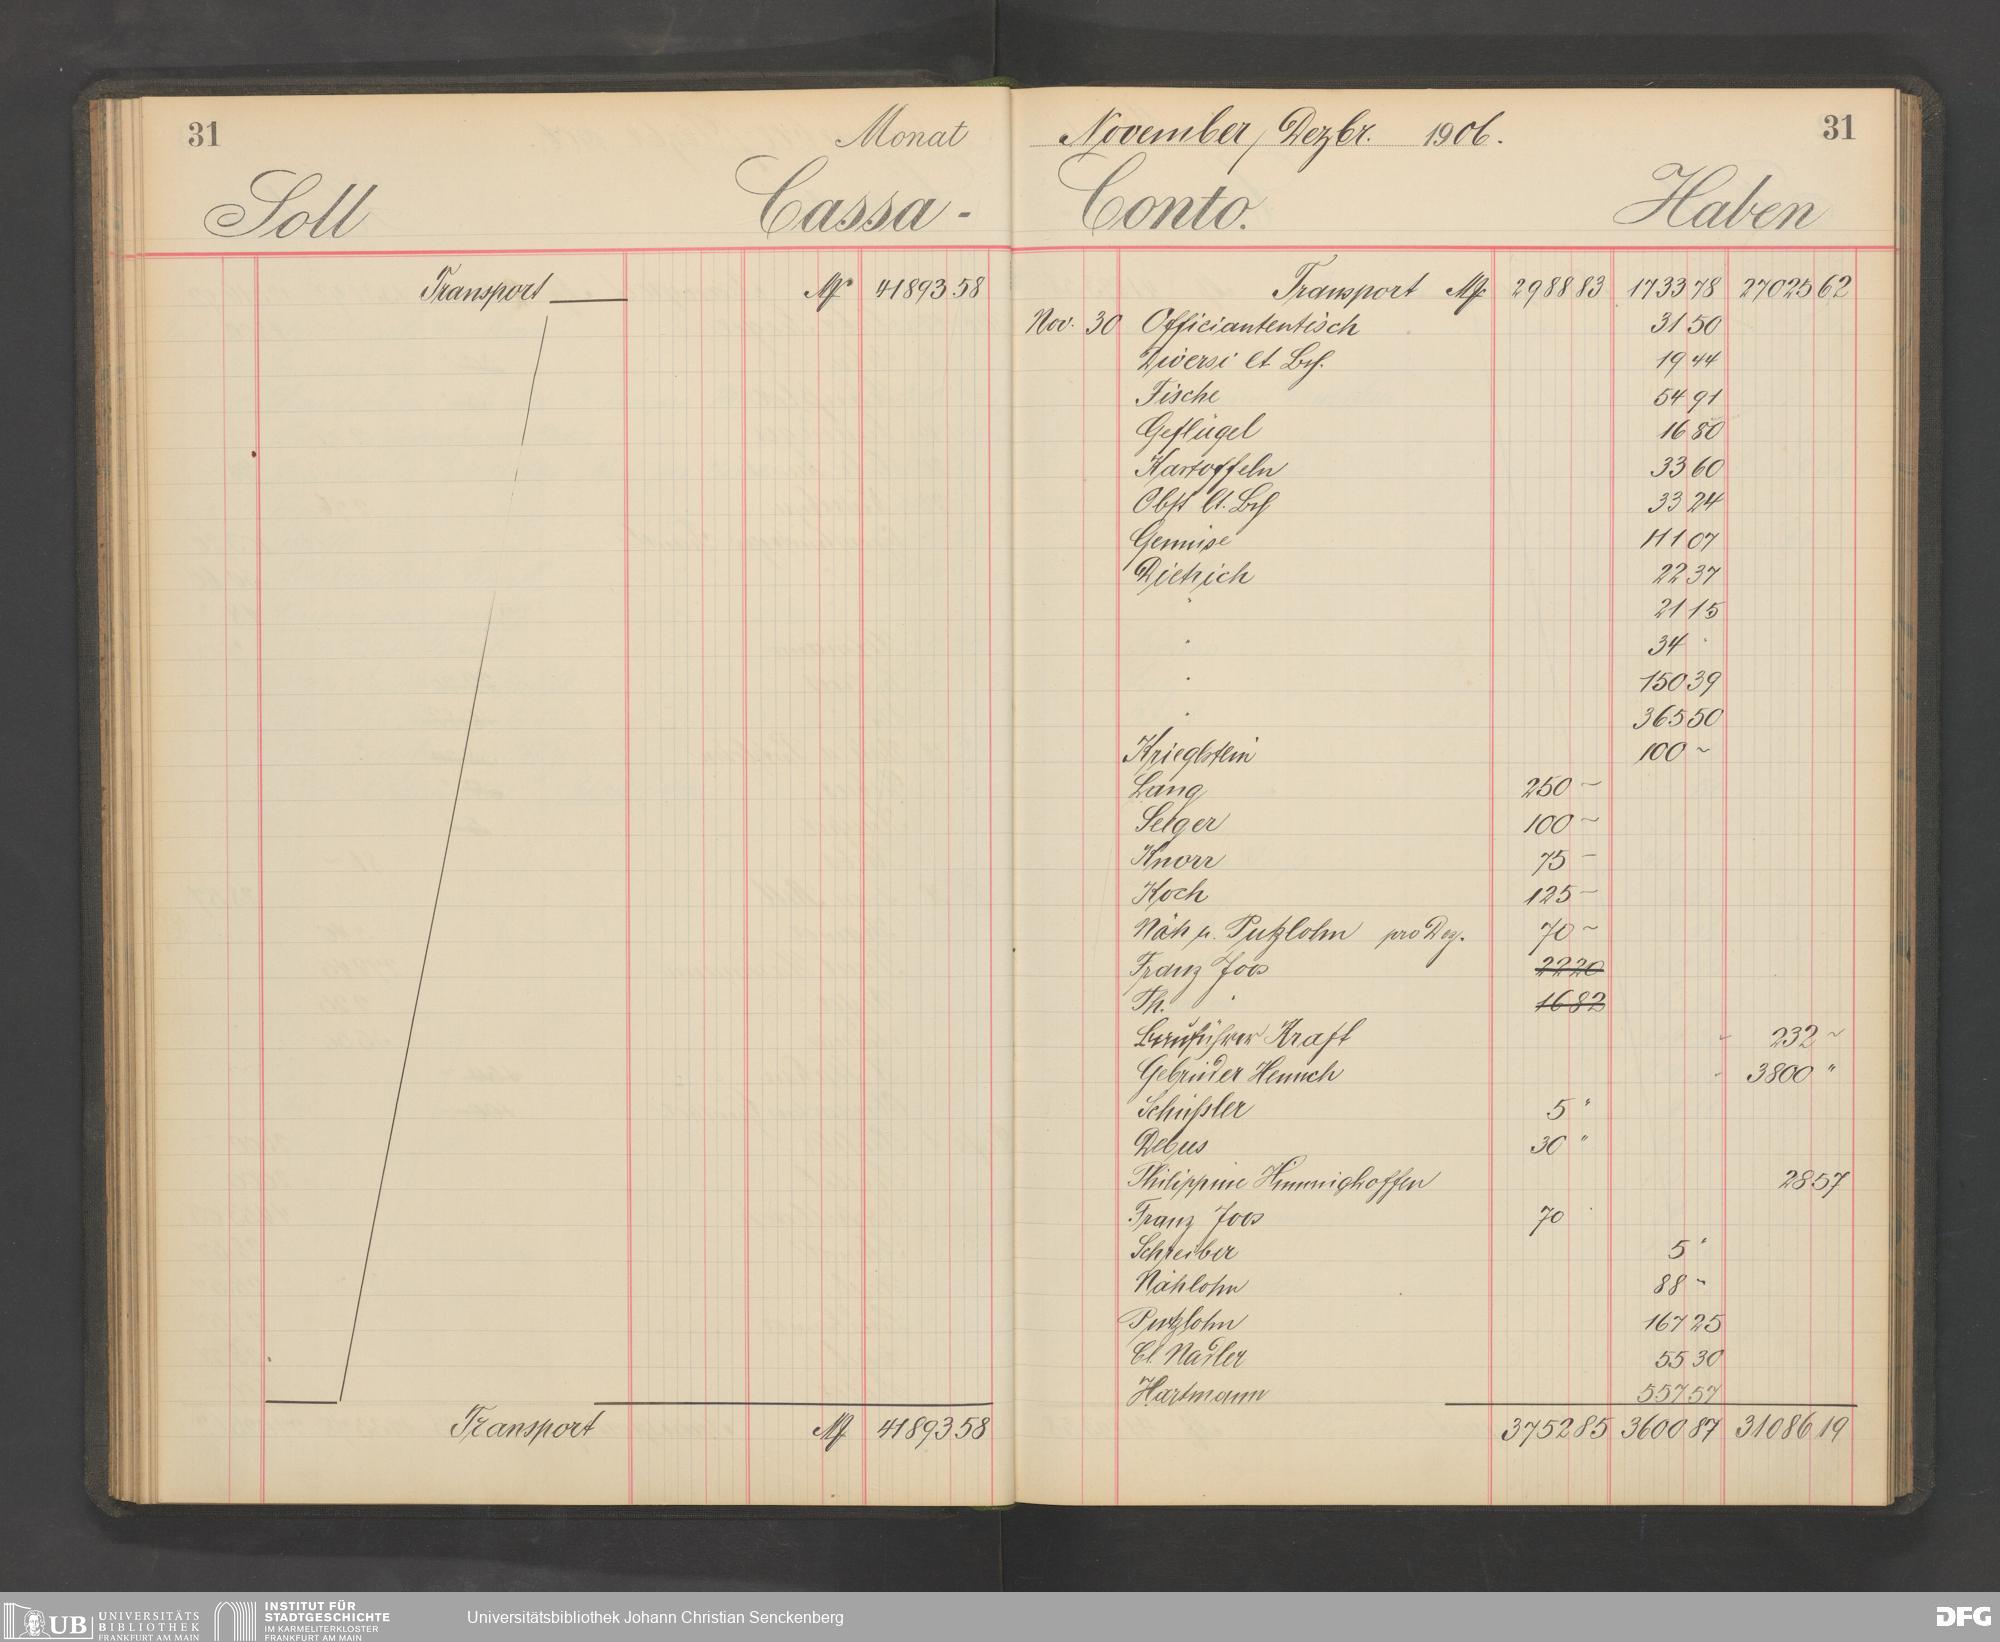 31
Monat
Soll
Cassa-
Transport M 41893 58
Transport M 41893 58
November/Dezbr. 1906.
31
Conto.
Haben
Transport M 2988 83 1733 78 27025 62
Nov. 30 Officiantentisch 31 50
Diversi lt. Bch. 19 44
Fische 54 91
Geflügel 16 80
Kartoffeln 33 60
Obst lt. Bch 33 24
Gemüse 111 07
Dietrich 22 37
" 21 15
" 34 "
" 150 39
" 365 50
Krieglstein 100 ~
Lang 250 —
Selger 100 ~
Knorr 75 —
Koch 125 —
Näh u. Putzlohn pro Dez. 70 ~
Franz Joos 22 20
Th. " 16 82
Bauführer Kraft 232 ~
Gebrüder Hennch 3800 "
Schüßler 5 "
Debus 30 "
Philippine Himmighoffen 28 57
Franz Joos 70
Schreiber 5 "
Nählohn 88 ~
Putzlohn 167 25
Cl. Nadler 55 30
Hartmann 557 57
3752 85 3600 87 31086 19
UB UNIVERSITÄTS
BIBLIOTHEK
FRANKFURT AM MAIN
INSTITUT FÜR
STADTGESCHICHTE
IM KARMELITERKLOSTER
FRANKFURT AM MAIN
Universitätsbibliothek Johann Christian Senckenberg
DFG